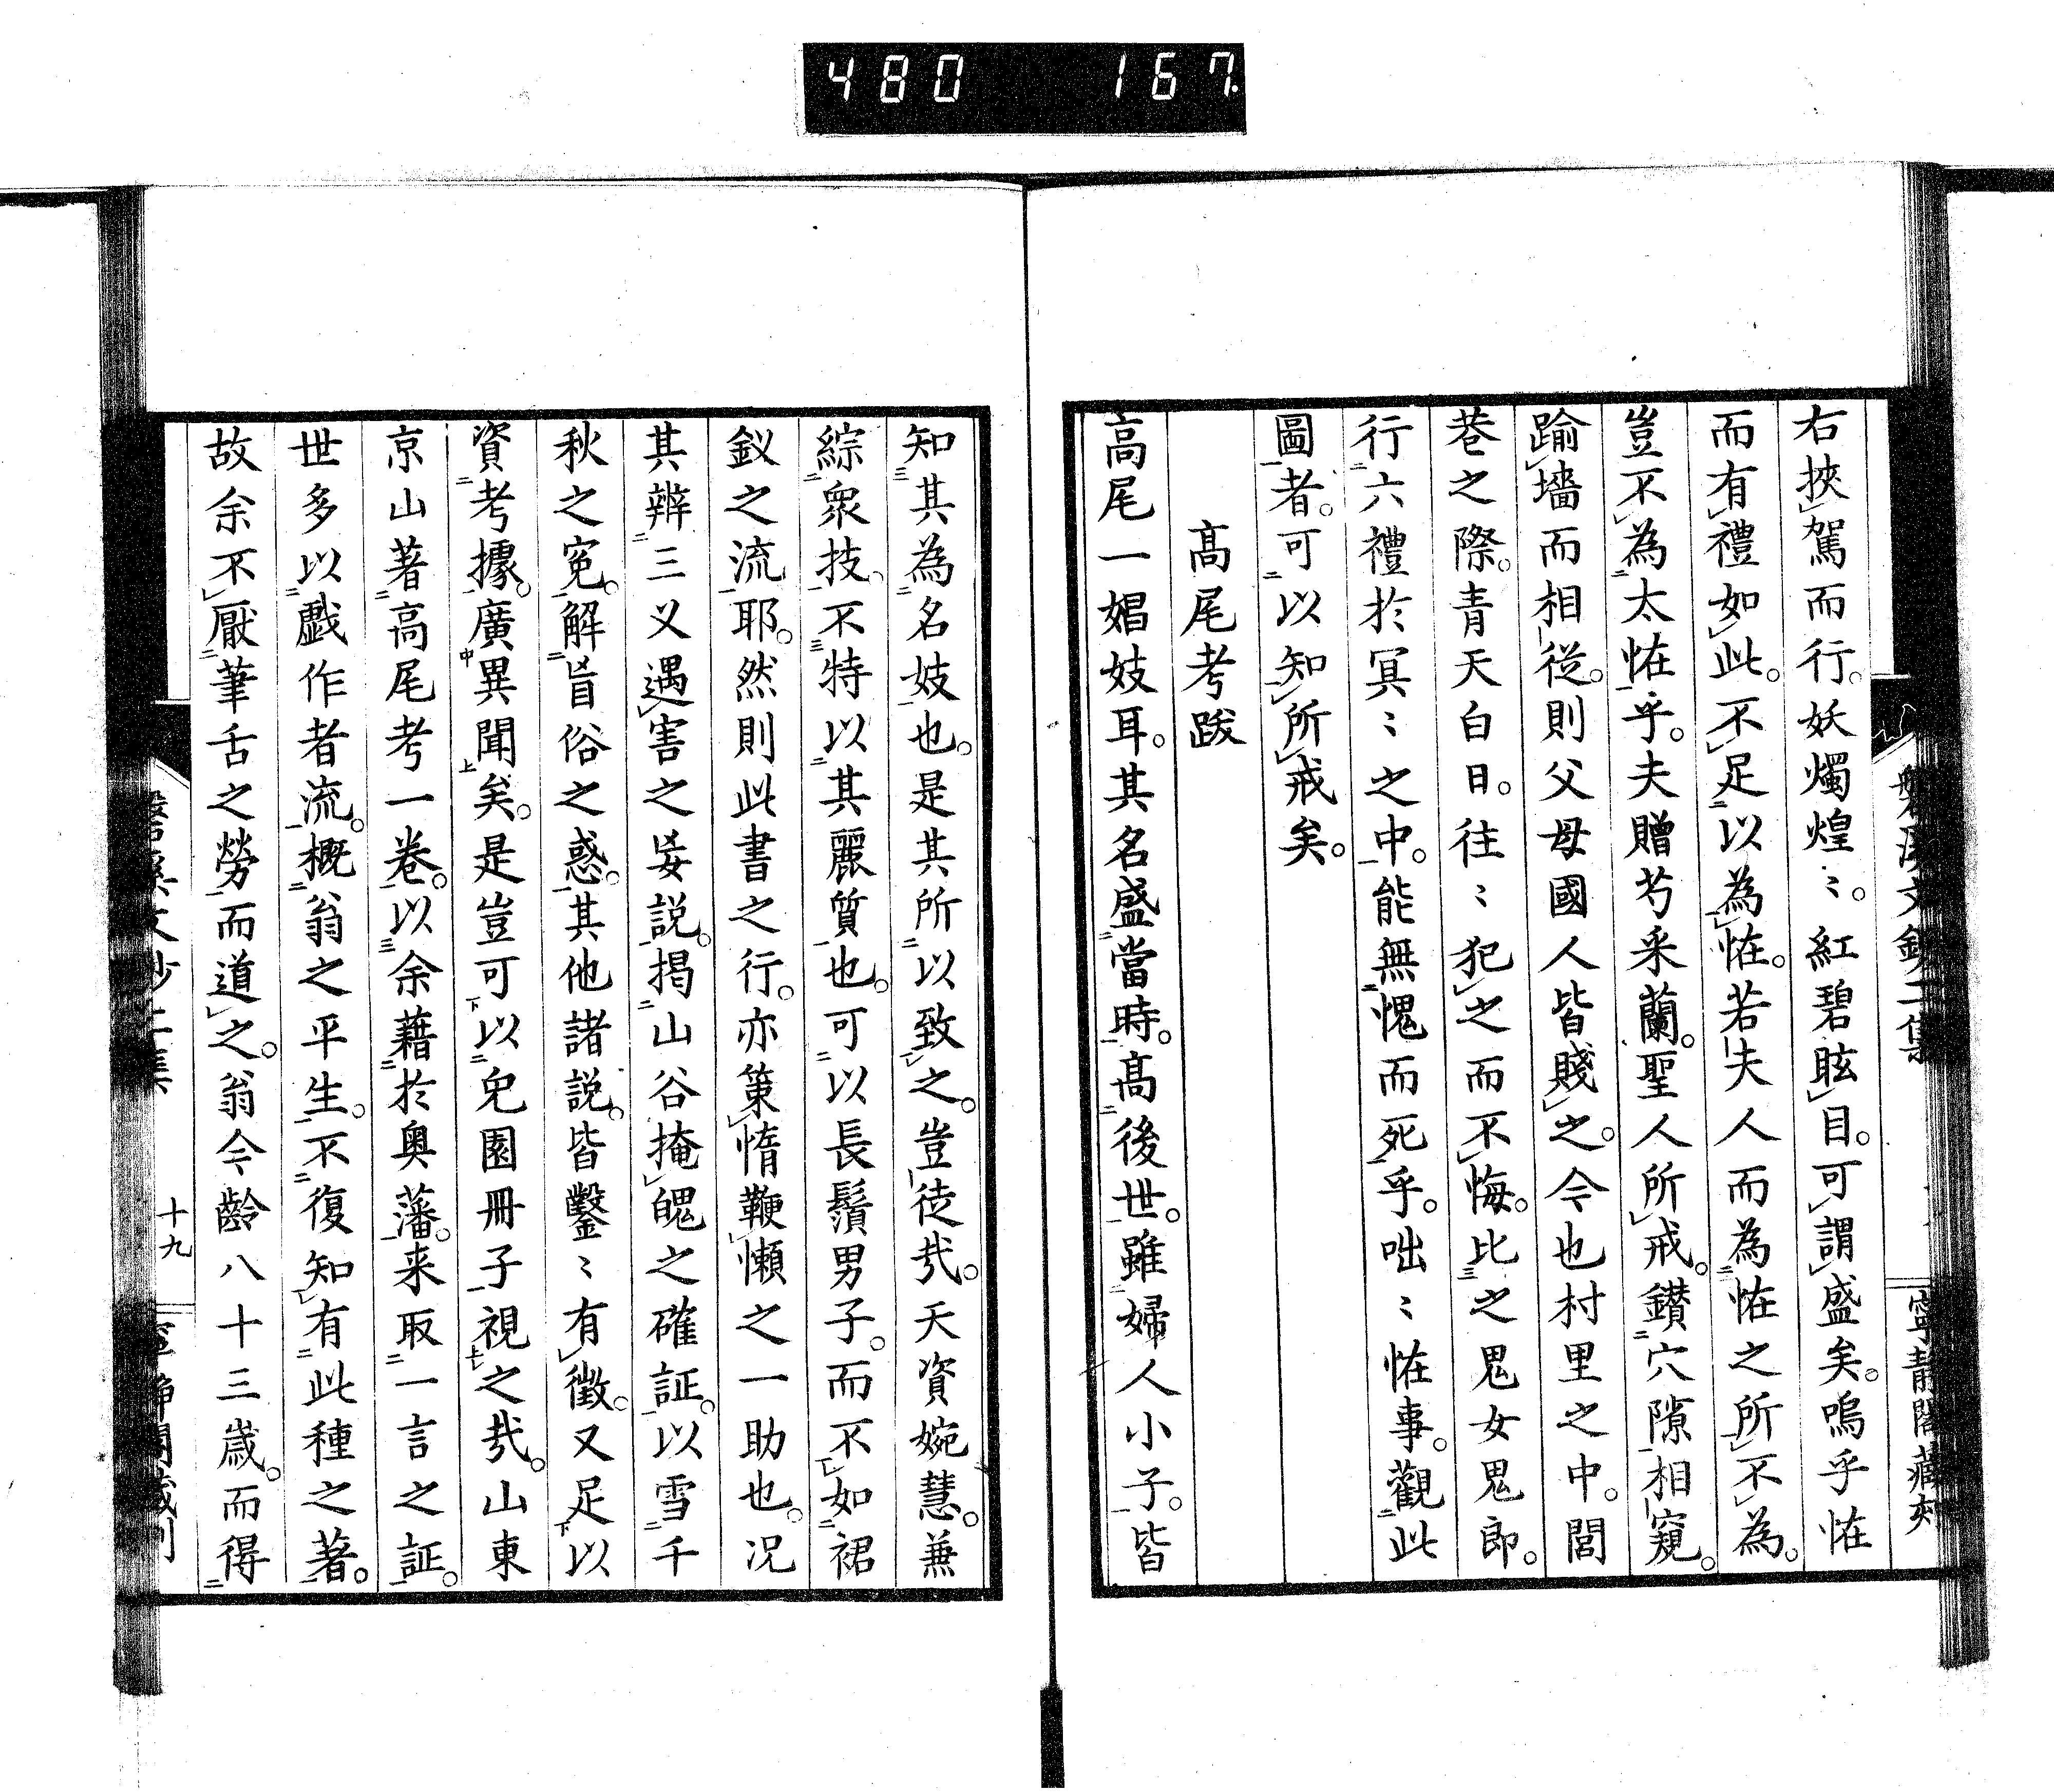 480 167.
右挾駕而行。妖燭煌〻。紅碧眩目。可謂盛矣。嗚乎恠
而有禮如此。不足以為恠。若夫人而為恠之所不為。
豈不為太恠乎。夫贈芍采蘭。聖人所戒。鑚穴隙相窺。
踰墻而相從。則父母國人皆賤之。今也村里之中。閭
巷之際。青天白日。往〻犯之而不悔。比之鬼女鬼郎。
行六禮於冥〻之中。能無愧而死乎。咄〻恠事。觀此
圖者。可以知所戒矣。
高尾考跋
高尾一娼妓耳。其名盛當時。高後世。雖婦人小子。皆
知其為名妓也。是其所以致之。豈徒哉。天資婉慧。兼
綜衆技。不特以其麗質也。可以長鬚男子。而不如裙
釵之流耶。然則此書之行。亦策惰鞭懶之一助也。况
其辨三叉遇害之妄説。掲山谷掩魄之確証。以雪千
秋之寃。解旨俗之惑。其他諸説。皆鑿〻有徴。又足以
資考據。廣異聞矣。是豈可以兔園冊子視之哉。山東
京山著高尾考一卷。以余藉於奥藩。来取一言之証。
世多以戯作者流。概翁之平生。不復知有此種之著。
故余不厭筆舌之勞而道之。翁今齡八十三歳。而得
十九
寧靜閣藏刻